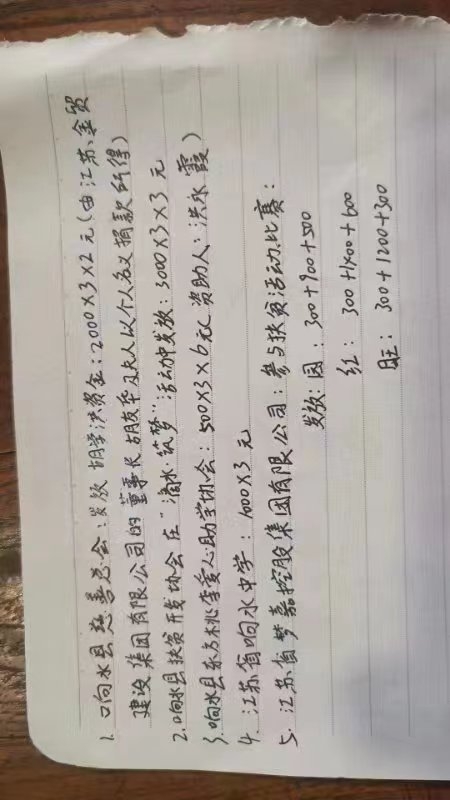 1. 响水县慈善总会：发放助学济资金：2000×3×2元（由江苏金贸
建设集团有限公司的董事长胡友华及夫人以个人名义捐款所得）
2. 响水县扶贫开发协会在"滴水·筑梦"活动中发放：3000×3×3元
3. 响水县东方桃李爱心助学协会：500×3×6元（资助人：洪永霞）
4. 江苏省响水中学：1000×3元
5. 江苏省梦嘉控股集团有限公司：参与扶贫活动比赛：
发放：园：300+900+500
红：300+1800+600
旺：300+1200+300